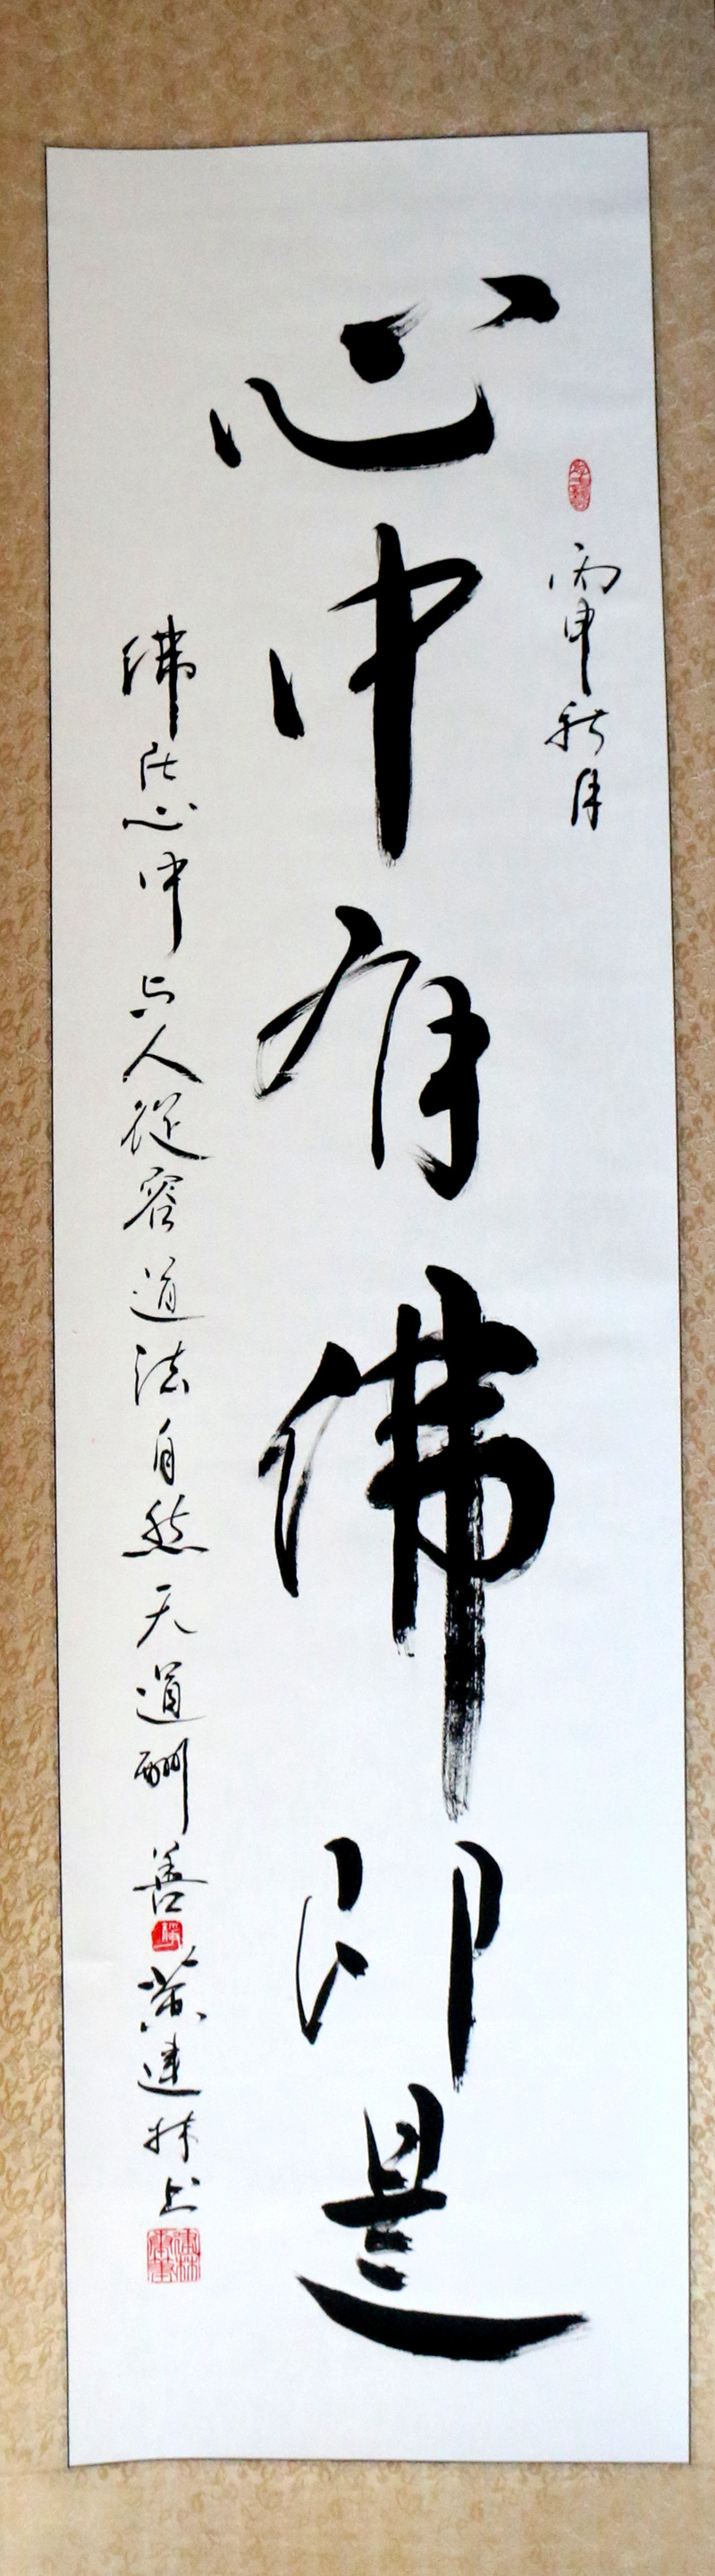 丙申秋月
心中有佛即是
佛在心中与人從容道法自然天道酬善 黄建林书